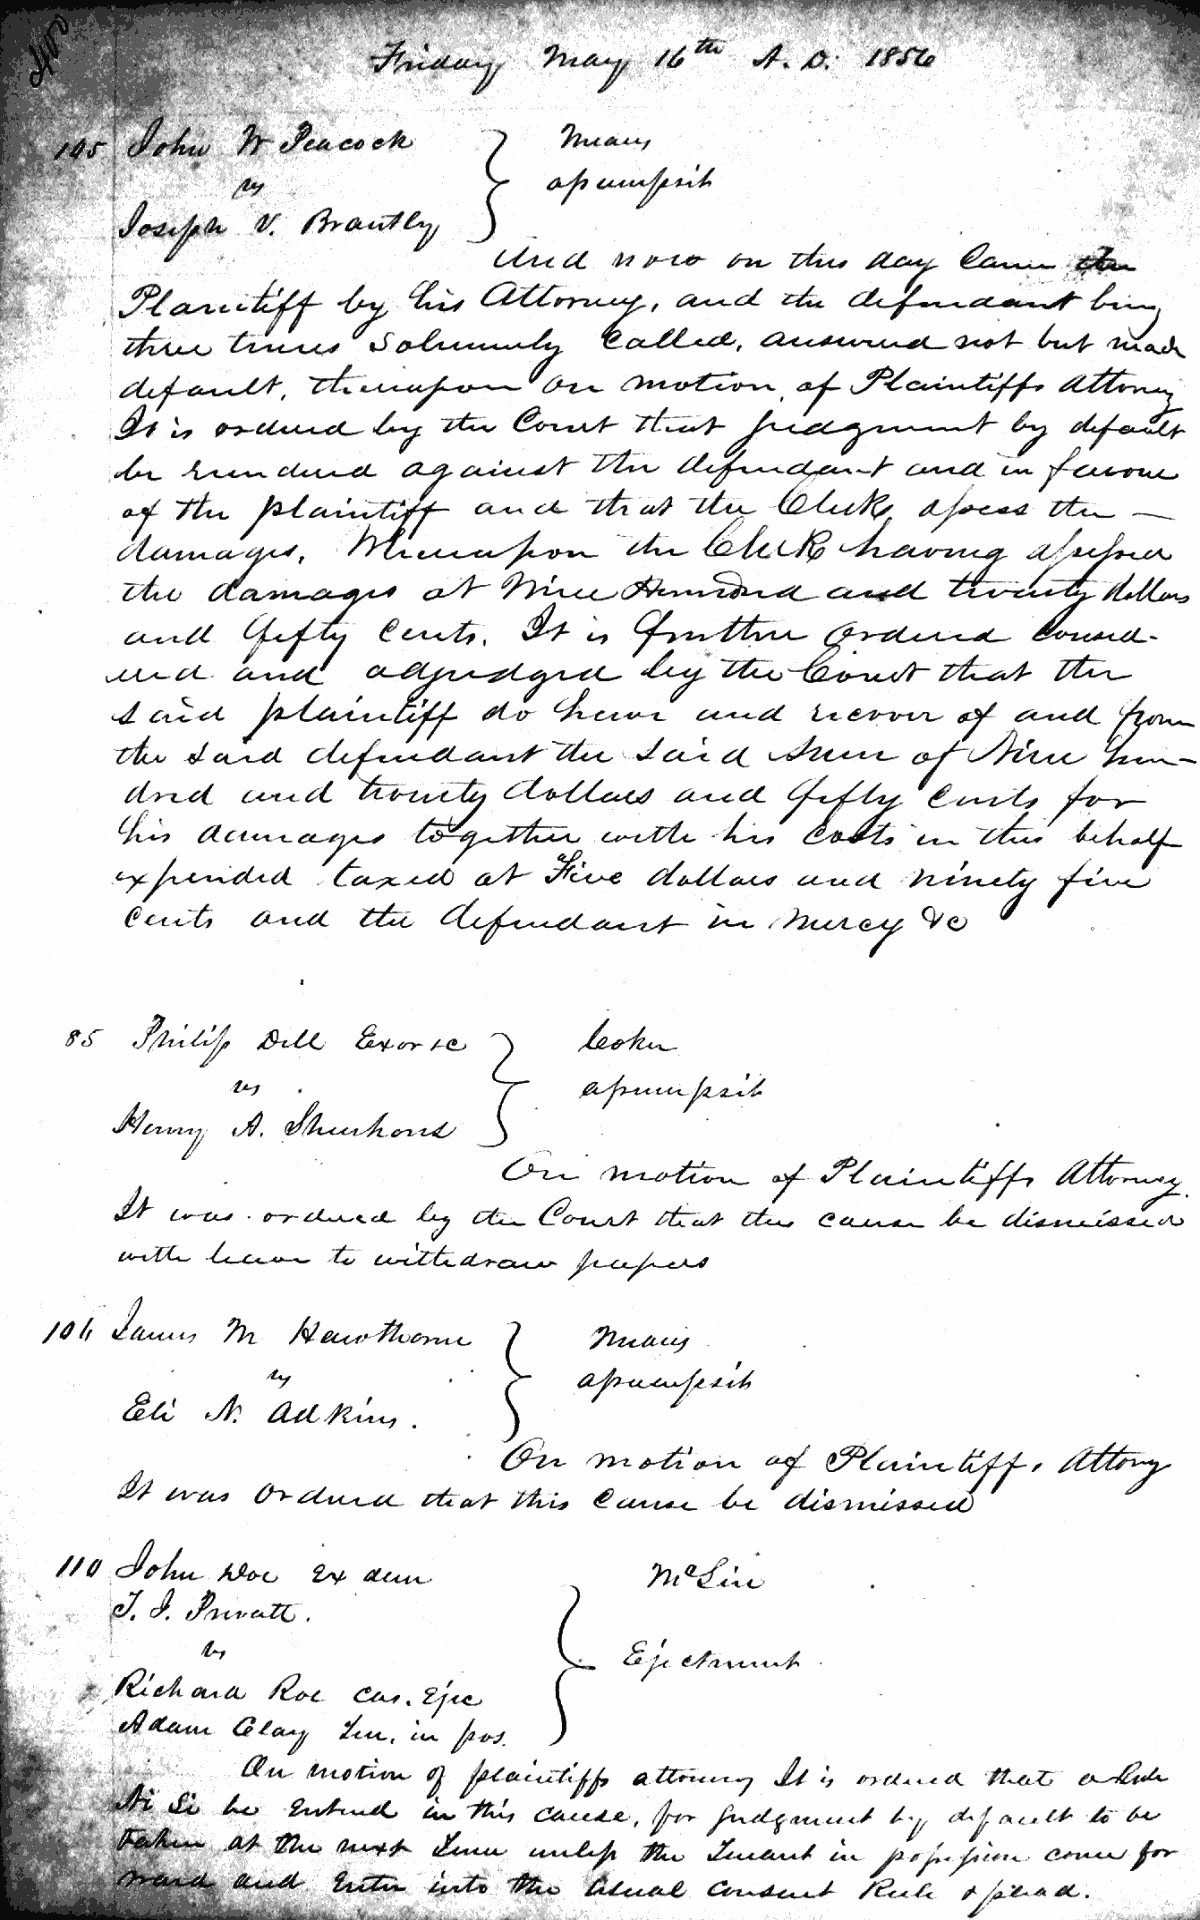 400
Friday May 16th A. D. 1856
105 John W Peacock } Means
vs assumpsit
Joseph V. Brantly
And now on this day came the
Plaintiff by his Attorney, and the defendant being
three times Solemnly Called, answered not but made
default, thereupon on motion of Plaintiffs Attorney
It is ordered by the Court that judgment by default
be rendered against the defendant and in favour
of the plaintiff and that the Clerk assess the —
damages. Whereupon the Clerk having assessed
the damages at Nine Hundred and twenty dollars
and fifty Cents. It is further ordered consid-
ered and adjudged by the Court that the
said plaintiff do have and recover of and from
the said defendant the said sum of Nine hun-
dred and twenty dollars and fifty cents for
his damages together with his costs in this behalf
expended taxed at Five dollars and ninety five
cents and the defendant in mercy &c
85 Philip Dill Exor &c } Coker
vs assumpsit
Henry A.
On motion of Plaintiffs Attorney
It was ordered by the Court that this cause be dismissed
with leave to withdraw papers
106 James M Hawthorne } Means
vs assumpsit
Eli N. Adkins.
On motion of Plaintiffs Attorny
It was Ordered that this Cause be dismissed
110 John Doe Ex dem McLin
T. J. Privatt.
vs } Ejectment
Richard Roe Cas. Ejec
Adam Clay Ten. in pos.
On motion of plaintiffs attorney It is ordered that a Rule
Ni Si be Entered in this cause, for judgment by default to be
taken at the next Term unless the Tenant in possession come for
ward and Enter into the Usual Consent Rule & plead.